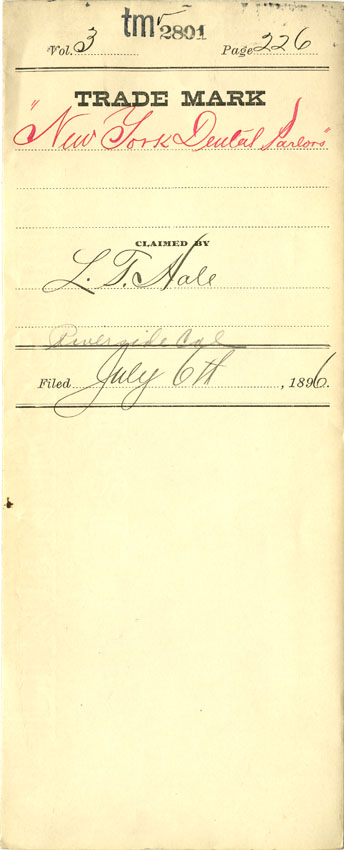 tm 2891
Vol. 3 Page 226
TRADE MARK
"New York Dental Parlors"
CLAIMED BY
L. T. Hale
Riverside Cal
Filed July 6th, 1896.